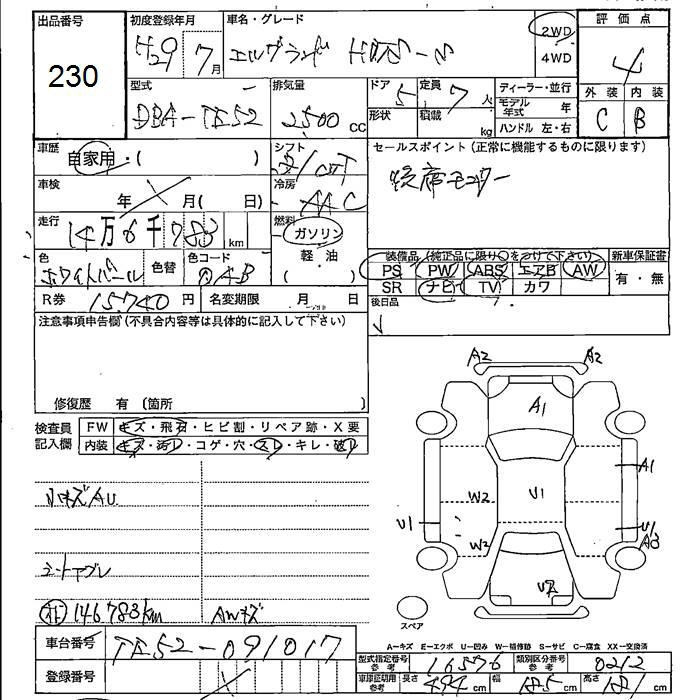 出品番号 初度登録年月 車名・グレード 評価点
230 H29 7月 エルグランド 2WD 4WD 4
型式 排気量 ドア 定員 ディーラー・並行
DBA-TE52 2500 cc 5 7人 モデル年式 年
形状 積載 kg ハンドル 左・右
外装 内装
C B
車歴 自家用・( ) シフト
セールスポイント(正常に機能するものに限ります)
車検 年 月( 日) 冷房 AAC
後席モニター
走行 14万6千783km 燃料 ガソリン 軽・油 ( )
色 ホワイトパール 色替 色コード QAB
装備品(純正品に限り○をつけて下さい) 新車保証書
PS PW ABS エアB AW 有・無
SR ナビ TV カワ
R券 15,740円 名変期限 月 日
後日品
注意事項申告欄(不具合内容等は具体的に記入して下さい)
修復歴 有 (箇所
検査員記入欄 FW キズ・飛石・ヒビ割・リペア跡・X要
内装 キズ・汚レ・コゲ・穴・スレ・キレ・破レ
小キズAU
シートスレ
146,783km AWキズ
A2 A2
A1
A1
W2 U1
U1 U1
W2 A3
U2
スペア
A-キズ E-エクボ U-凹み W-補修跡 S-サビ C-腐食 XX-交換済
車台番号 TE52-091017
登録番号
型式指定番号 参考 16576 類別区分番号 参考 0212
車庫証明用 参考 長さ 494cm 幅 185cm 高さ 181cm